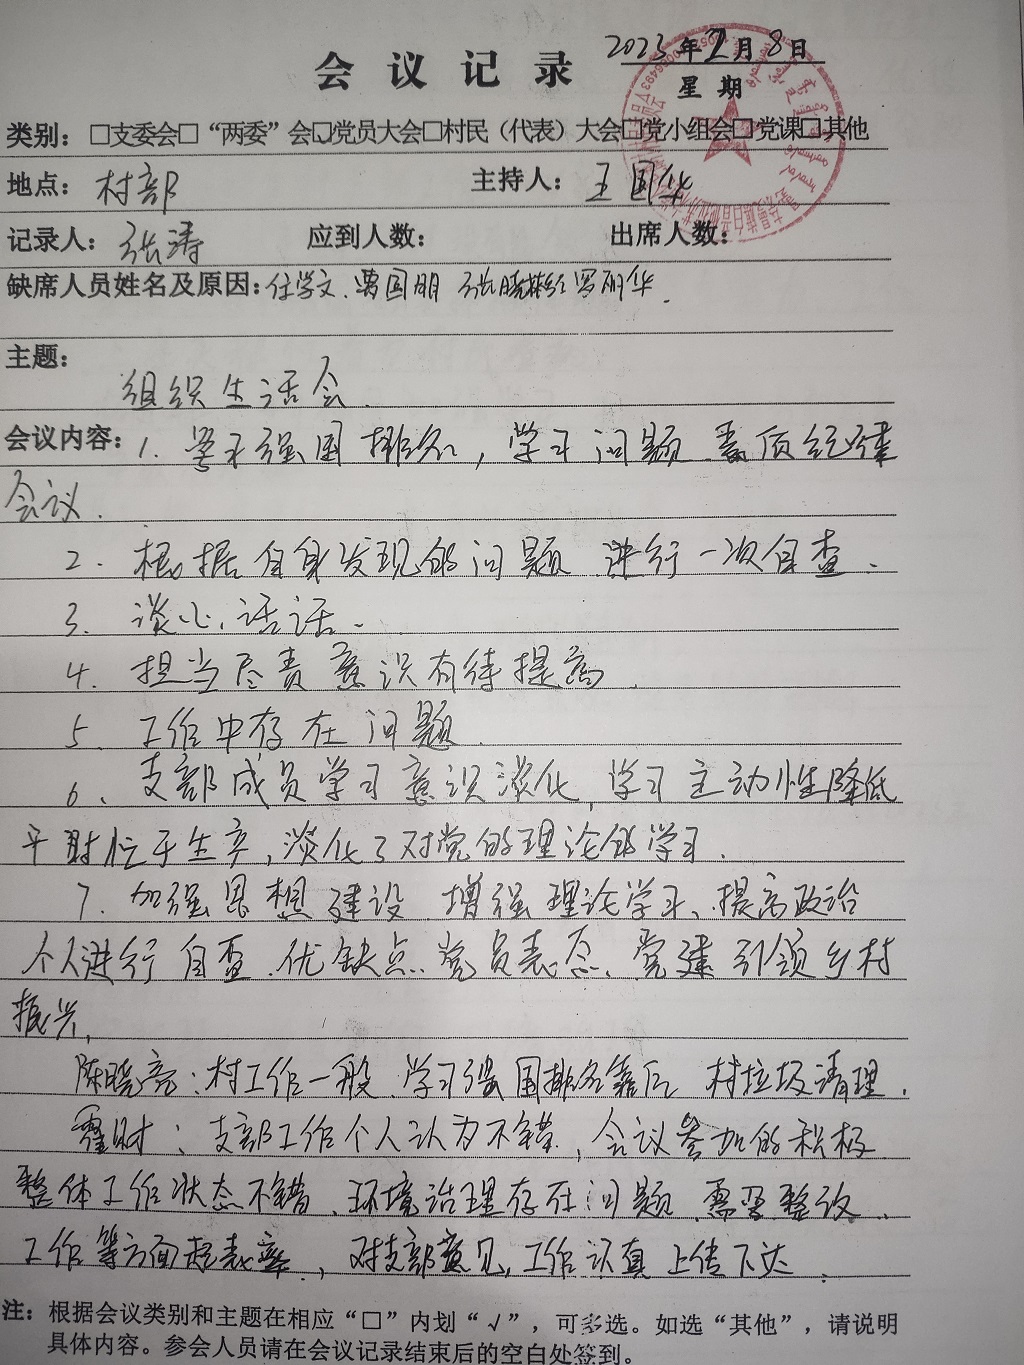 会议记录
2023年2月8日
星期
类别：□支委会□“两委”会□党员大会□村民（代表）大会□党小组会□党课□其他
地点：村部 主持人：王国华
记录人：张涛 应到人数： 出席人数：
缺席人员姓名及原因：任学文、曹国明 张晓 罗丽华.
主题：
组织生活会.
会议内容：1. 学习强国排名，学习问题.素质纪律
会议.
2. 根据自身发现的问题 进行一次自查.
3. 谈心话话.
4. 担当尽责意识有待提高.
5. 工作中存在问题.
6. 支部成员学习意识淡化，学习主动性降低
平时忙于生产，淡化了对党的理论的学习.
7. 加强思想建设 增强理论学习、提高政治
个人进行自查.优缺点.党员表态、党建引领乡村
振兴，
陈晓亮：村工作一般 学习强国排名靠后 村垃圾清理.
霍财：支部工作个人认为不错，会议参加的积极.
整体工作状态不错、环境治理存在问题 需要整改.
工作等方面起表率.，对支部意见，工作认真上传下达.
注：根据会议类别和主题在相应“□”内划“√”，可多选。如选“其他”，请说明
具体内容。参会人员请在会议记录结束后的空白处签到。